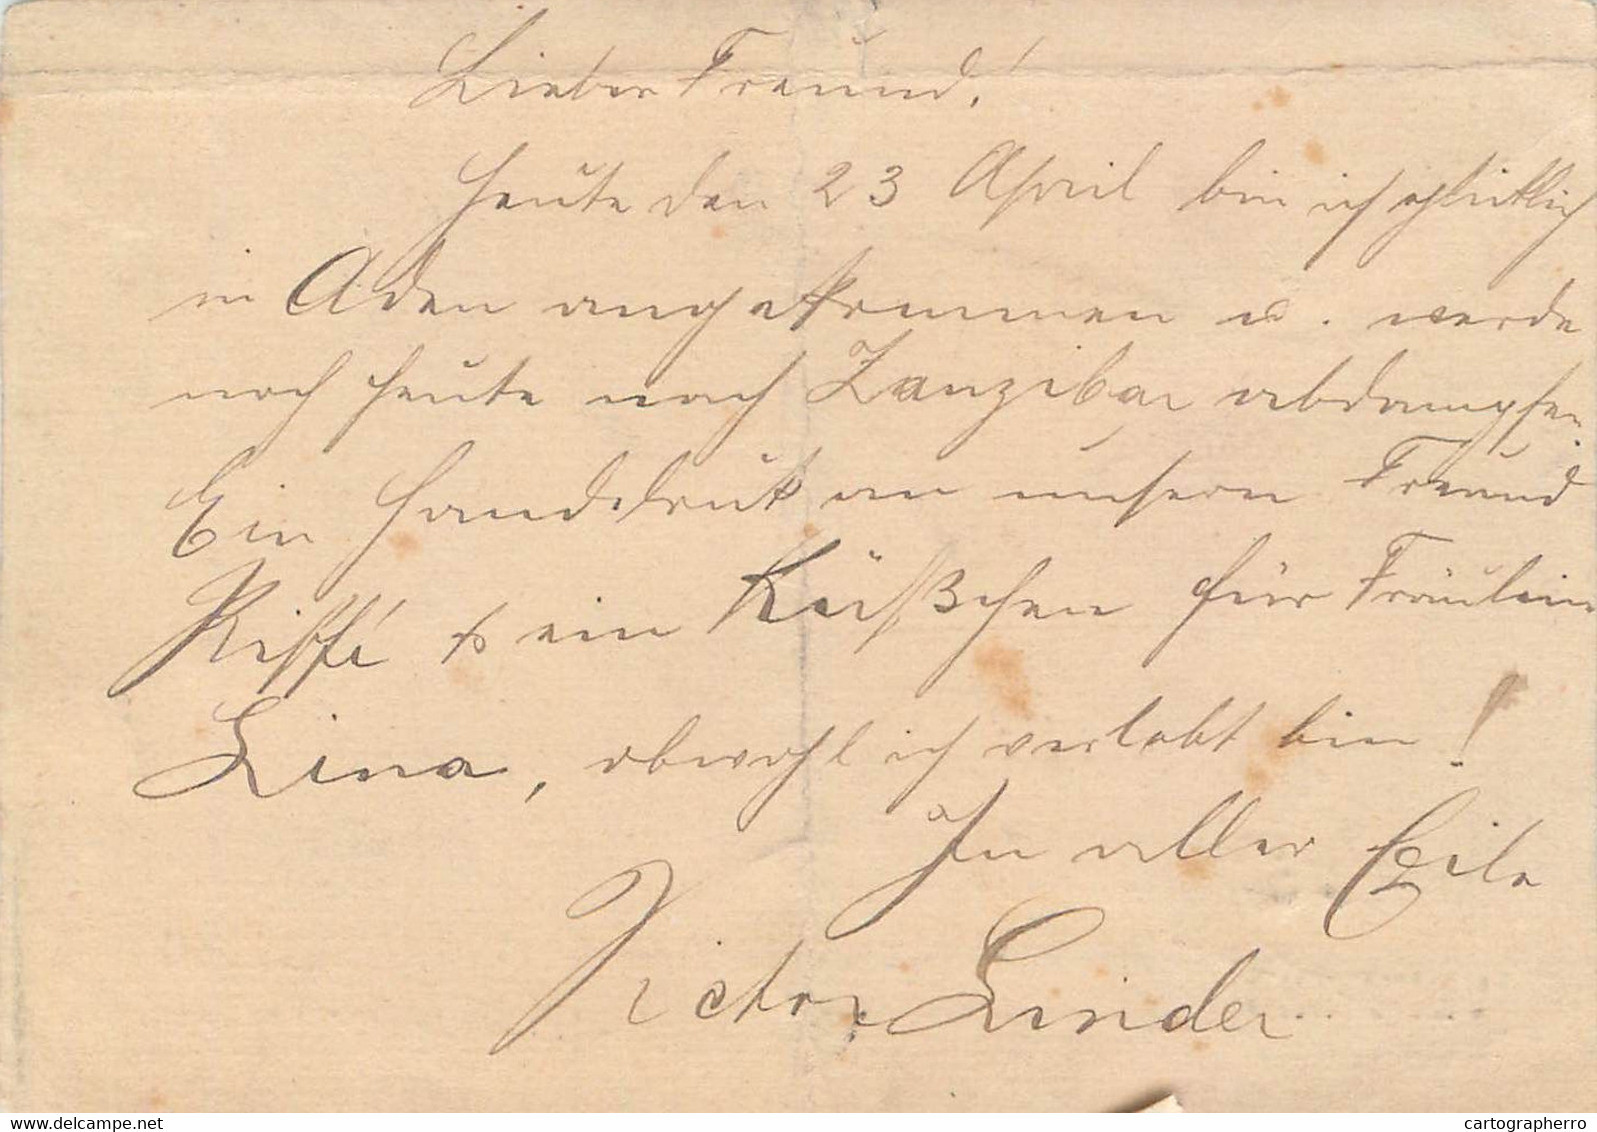 Lieber Freund!
Heute den 23 April bin ich glücklich
in Aden angekommen u. werde
noch heute nach Zanzibar abdampfen.
Ein Handdruck an unsern Freund
Riffé & ein Küßchen für Fräulein
Lina, obwohl ich verlobt bin!
In aller Eile
Victor Linder
www.delcampe.net
cartographerro